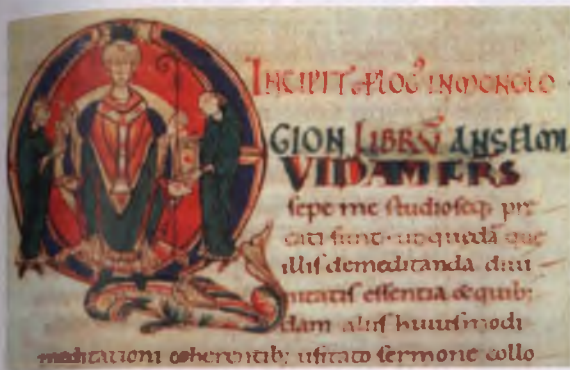 INCIPIT PLOG' IN MONOLO
GION LIBRŪ ANSELMI
UIDAM FRS
sepe me studioseq; pre
cati sunt. ut quedā que
illis de meditanda diui
nitatis essentia & quib;
dam aliis huiusmodi
meditationi coherentib; usitato sermone collo